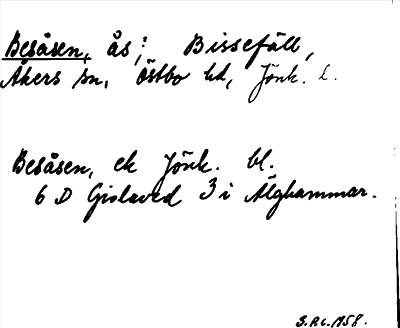 Besåsen, ås; Bissefäll,
Åkers sn, Östbo hd, Jönk. l.
Besåsen, ek Jönk. bl.
6 D Gislaved 3 i Älghammar.
1958.